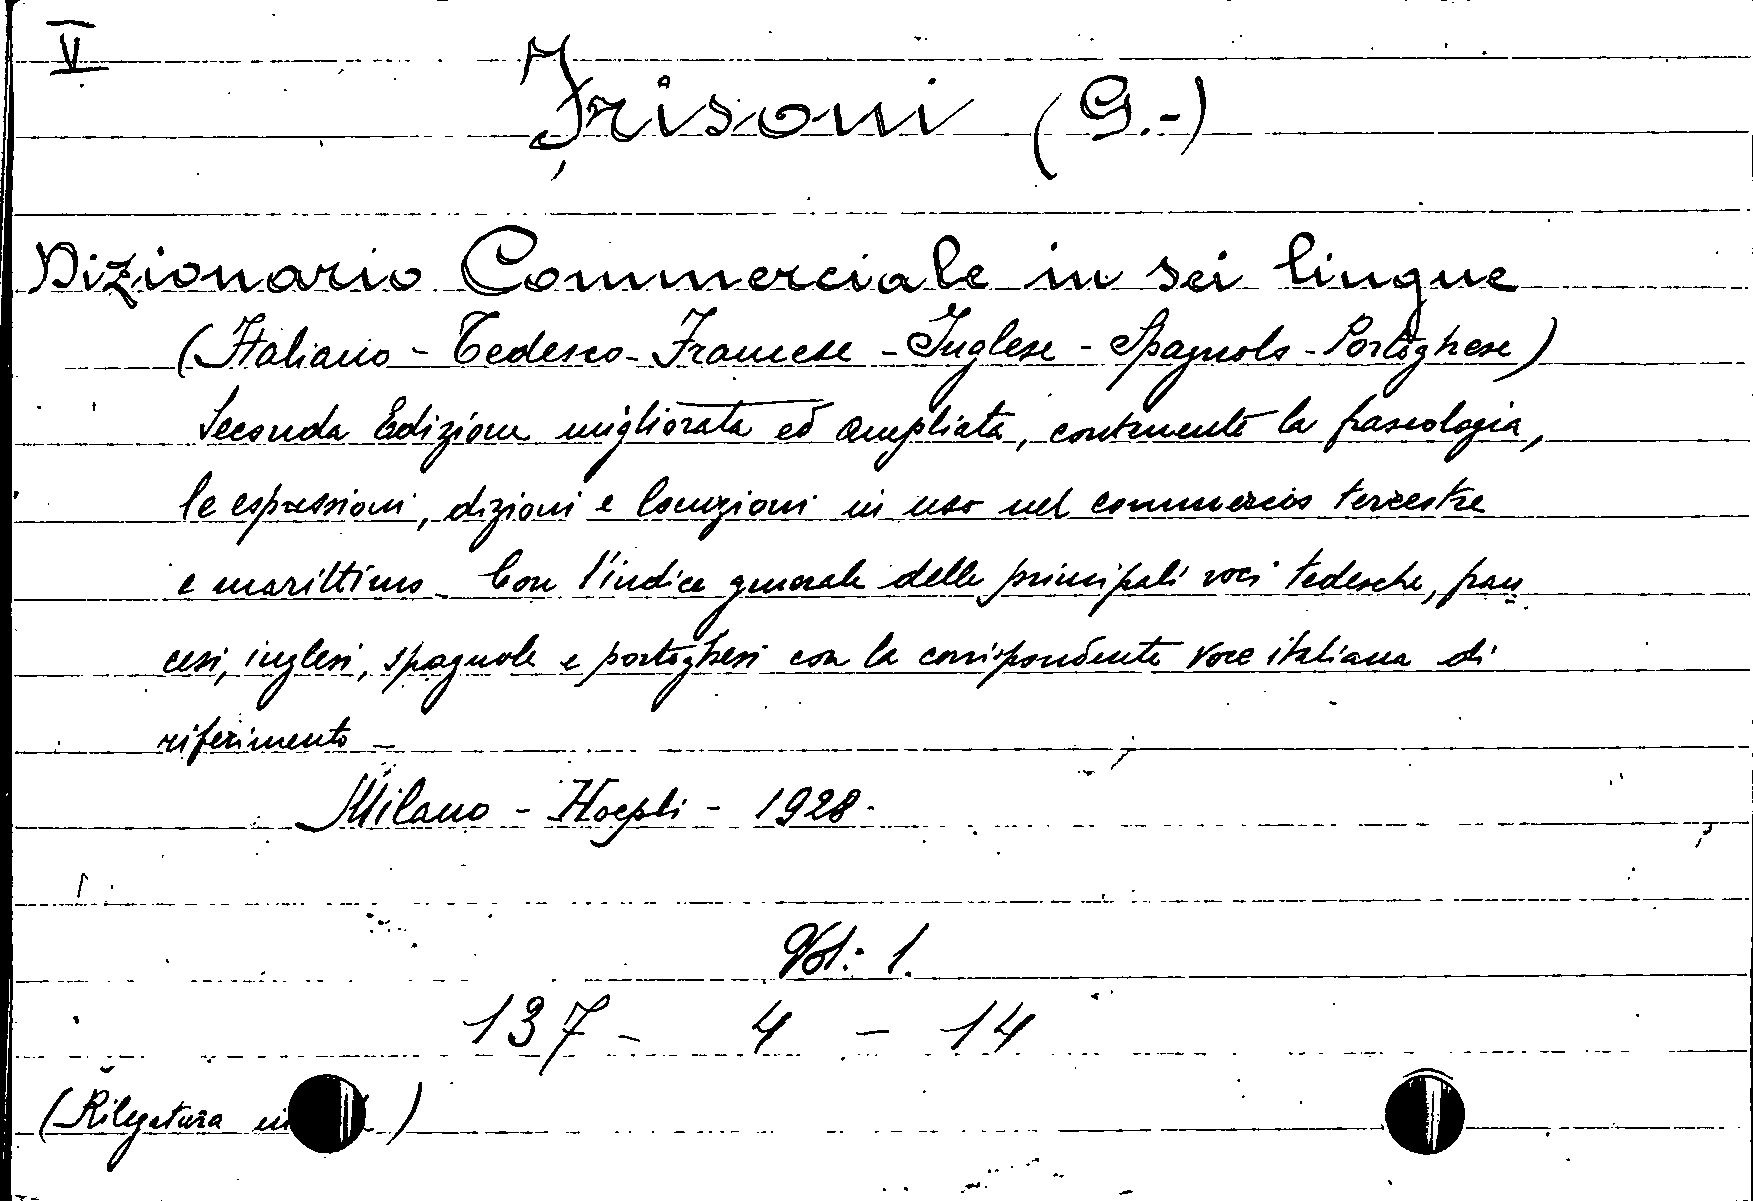 V
Frisoni (G.-)
Dizionario Commerciale in sei lingue
(Italiano - Tedesco - Francese - Inglese - Spagnolo - Portoghese)
Seconda Edizione migliorata ed ampliata, contenente la fraseologia,
le espressioni, dizioni e locuzioni in uso nel commercio terrestre
e marittimo - Con l'indice generale delle principali voci tedesche, fran
cesi, inglesi, spagnole e portoghesi con la corrispondente voce italiana di
riferimento -
Milano - Hoepli - 1928.
Vol: 1.
137 - 4 - 14
(Rilegatura in )